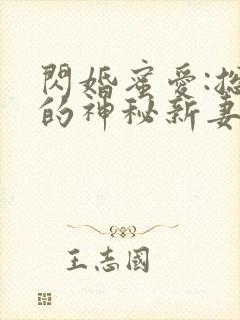 閃婚蜜愛:總
的神秘新妻
王志國